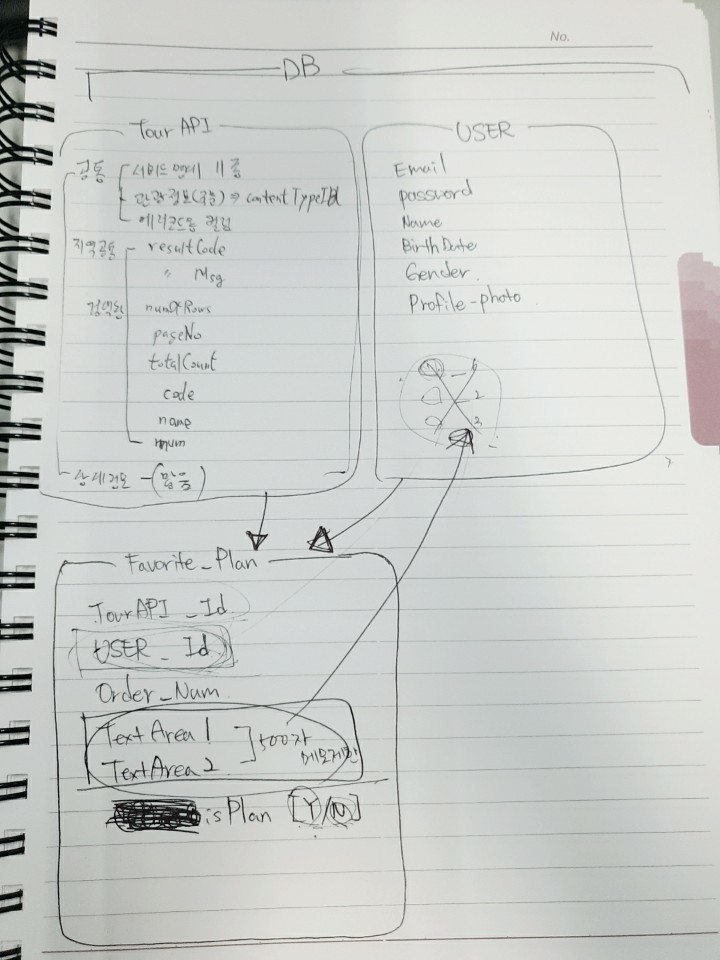 No.
DB
Tour API
공통 서비스 명세 11종
관광정보(국문) ⇒ contentTypeId
에러코드등 컬럼
지역공통 resultCode
〃 Msg
numOfRows
pageNo
totalCount
code
name
rnum
상세정보 - (많음)
USER
Email
password
Name
Birth Date
Gender.
Profile-photo
1
2
3
Favorite_Plan
TourAPI_Id
USER_Id
Order_Num
Text Area 1
Text Area 2
500자
메모제한
is Plan [Y/N]